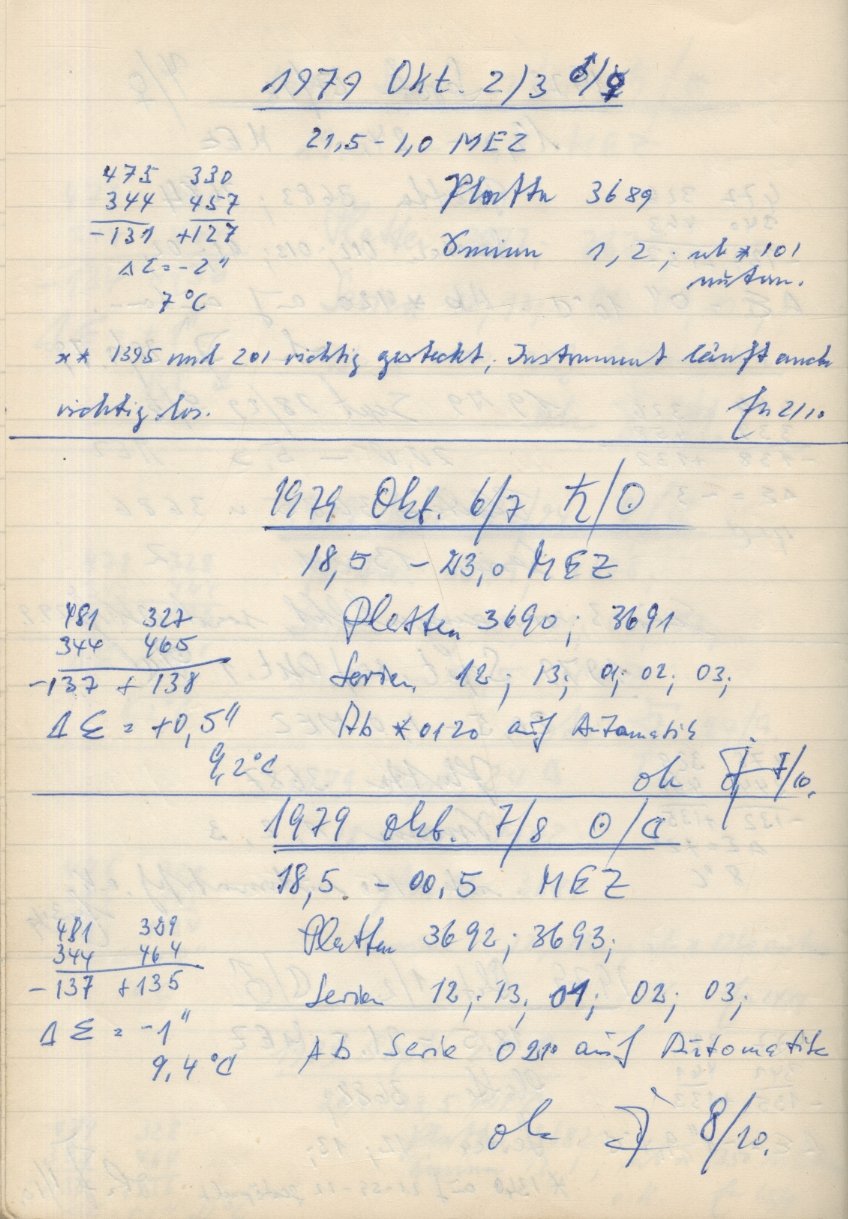 1979 Okt. 2/3 ♂/☿
21,5-1,0 MEZ
475 330
344 457
-131 +127
Δ Σ = -2"
7°C
Platte 3689
Serien 1, 2; ab * 101
autom.
** 1395 und 201 richtig gesteckt, Instrument läuft auch
richtig los.
2/10
1979 Okt. 6/7 ♄/☉
18,5 - 23,0 MEZ
481 327
344 465
-137 + 138
Δ Σ = +0,5"
9,2°C
Platten 3690; 3691
Serien 12; 13; 01; 02; 03;
Ab * 0120 auf Automatik
ok 7/10.
1979 Okt. 7/8 ☉/☾
18,5 - 00,5 MEZ
481 329
344 464
-137 +135
Δ Σ = -1"
9,4°C
Platten 3692; 3693;
Serien 12; 13, 01; 02; 03;
Ab Serie 0210 auf Automatik
ok 8/10.